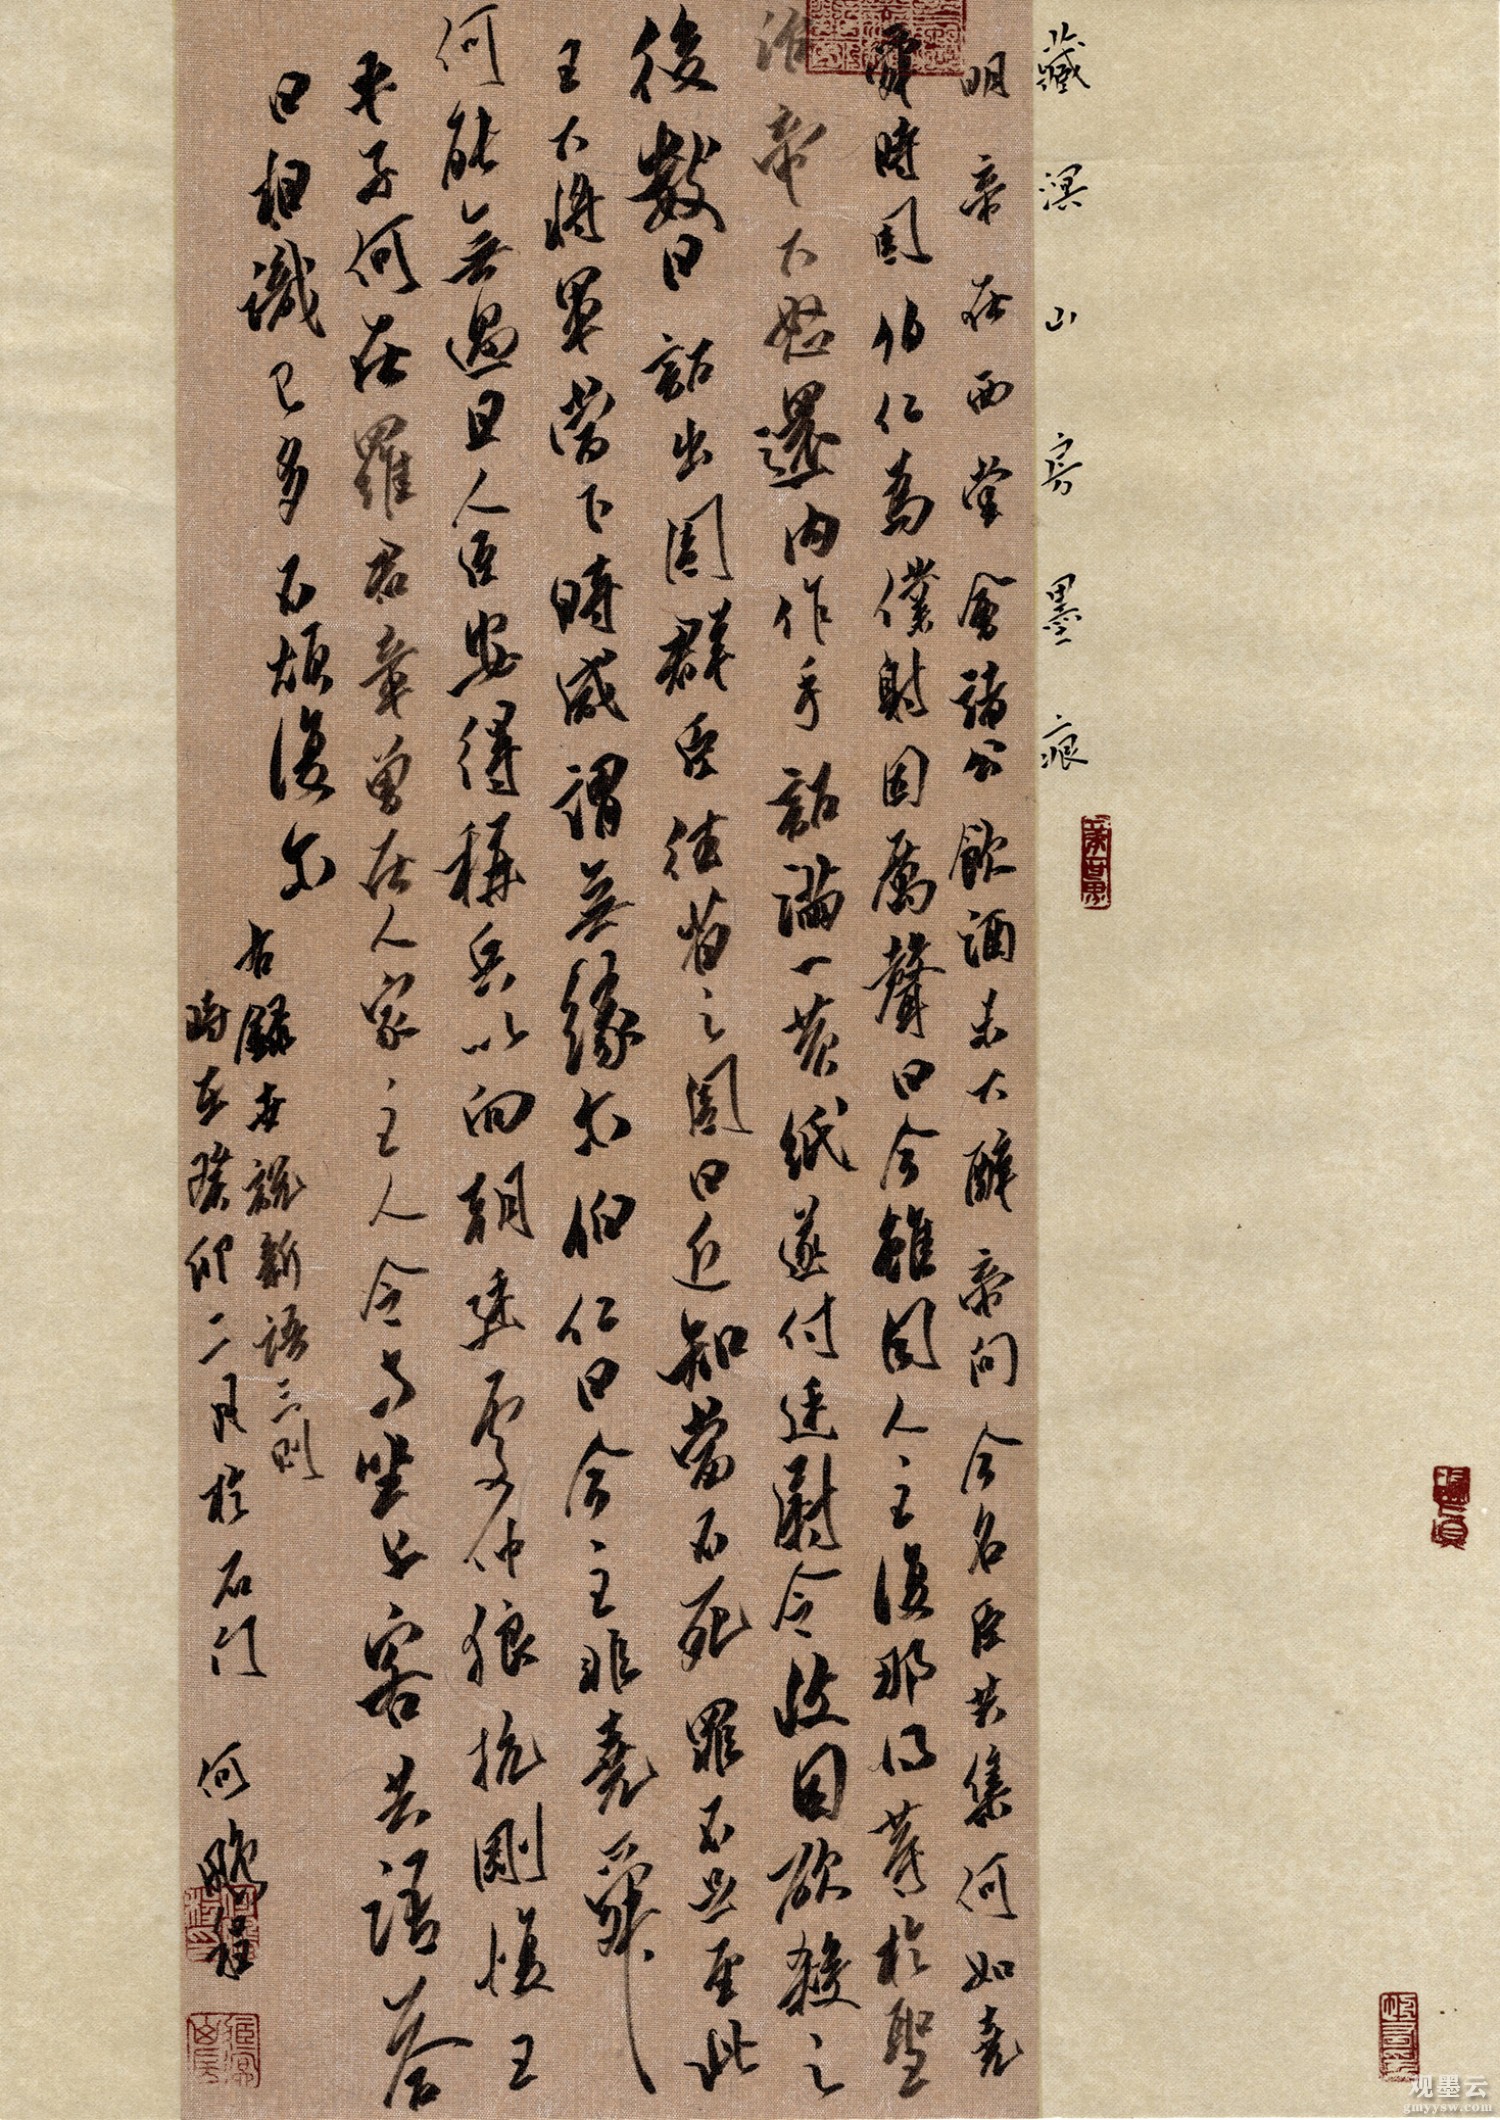 藏溟山房墨痕
明帝在西堂會諸公飲酒未大醉帝問今名臣共集何如堯
舜時周伯仁為僕射因厲聲曰今雖同人主復那得等於聖
治帝大怒還內作手詔滿一黃紙遂付廷尉令收因欲殺之
後數日詔出周群臣往省之周曰近知當不死罪不足至此
王大將軍當下時咸謂無緣爾伯仁曰今主非堯舜
何能無過且人臣安得稱兵以向朝廷處仲狼抗剛愎王
平子何在羅君章曾在人家主人令與坐上客共語答
曰相識已多不煩復爾
右錄世說新語三則
時在癸卯二月於石門 何鵬程
观墨云
gmyysw.com